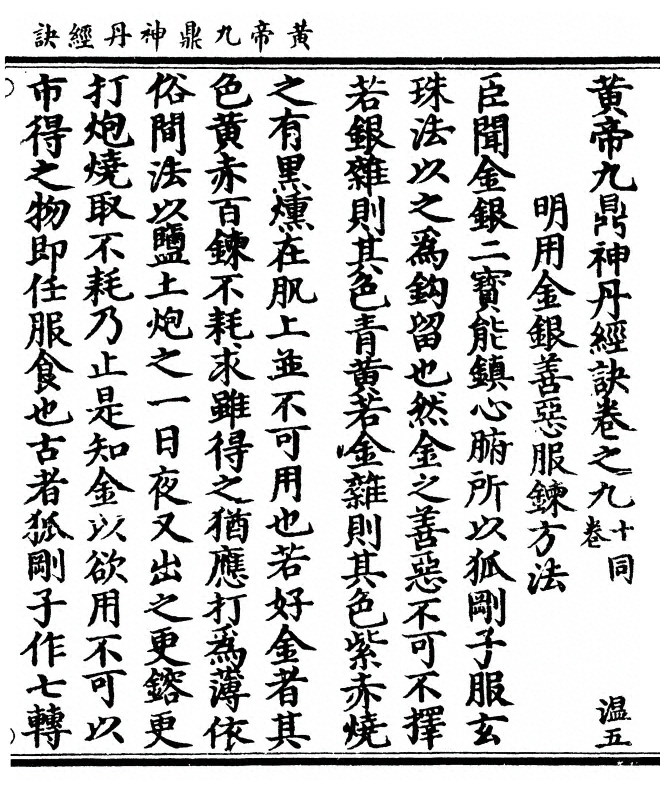 黃帝九鼎神丹經訣
黃帝九鼎神丹經訣卷之九十同卷
温五
明用金銀善惡服鍊方法
臣聞金銀二寶能鎮心腑所以狐剛子服玄
珠法以之爲鈎留也然金之善惡不可不擇
若銀雜則其色青黃若金雜則其色紫赤燒
之有黑燻在肌上並不可用也若好金者其
色黃赤百鍊不耗求雖得之猶應打爲薄依
俗間法以鹽土炮之一日夜又出之更鎔更
打炮燒取不耗乃止是知金以欲用不可以
市得之物即任服食也古者狐剛子作七轉